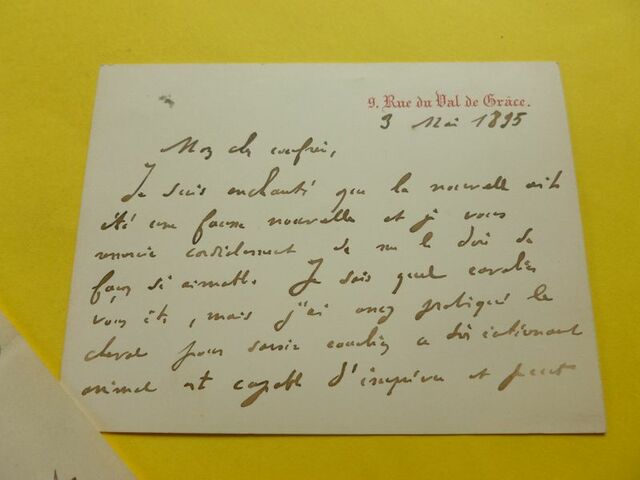 9. Rue du Val de Grâce.
3 Mai 1895
Mon cher confrère,
Je suis enchanté que la nouvelle ait
été une fausse nouvelle et je vous
remercie cordialement de me le dire de
façon si aimable. Je sais quel cavalier
vous êtes, mais j'ai assez pratiqué le
cheval pour savoir combien ce
animal est capable d'imprévu et peut